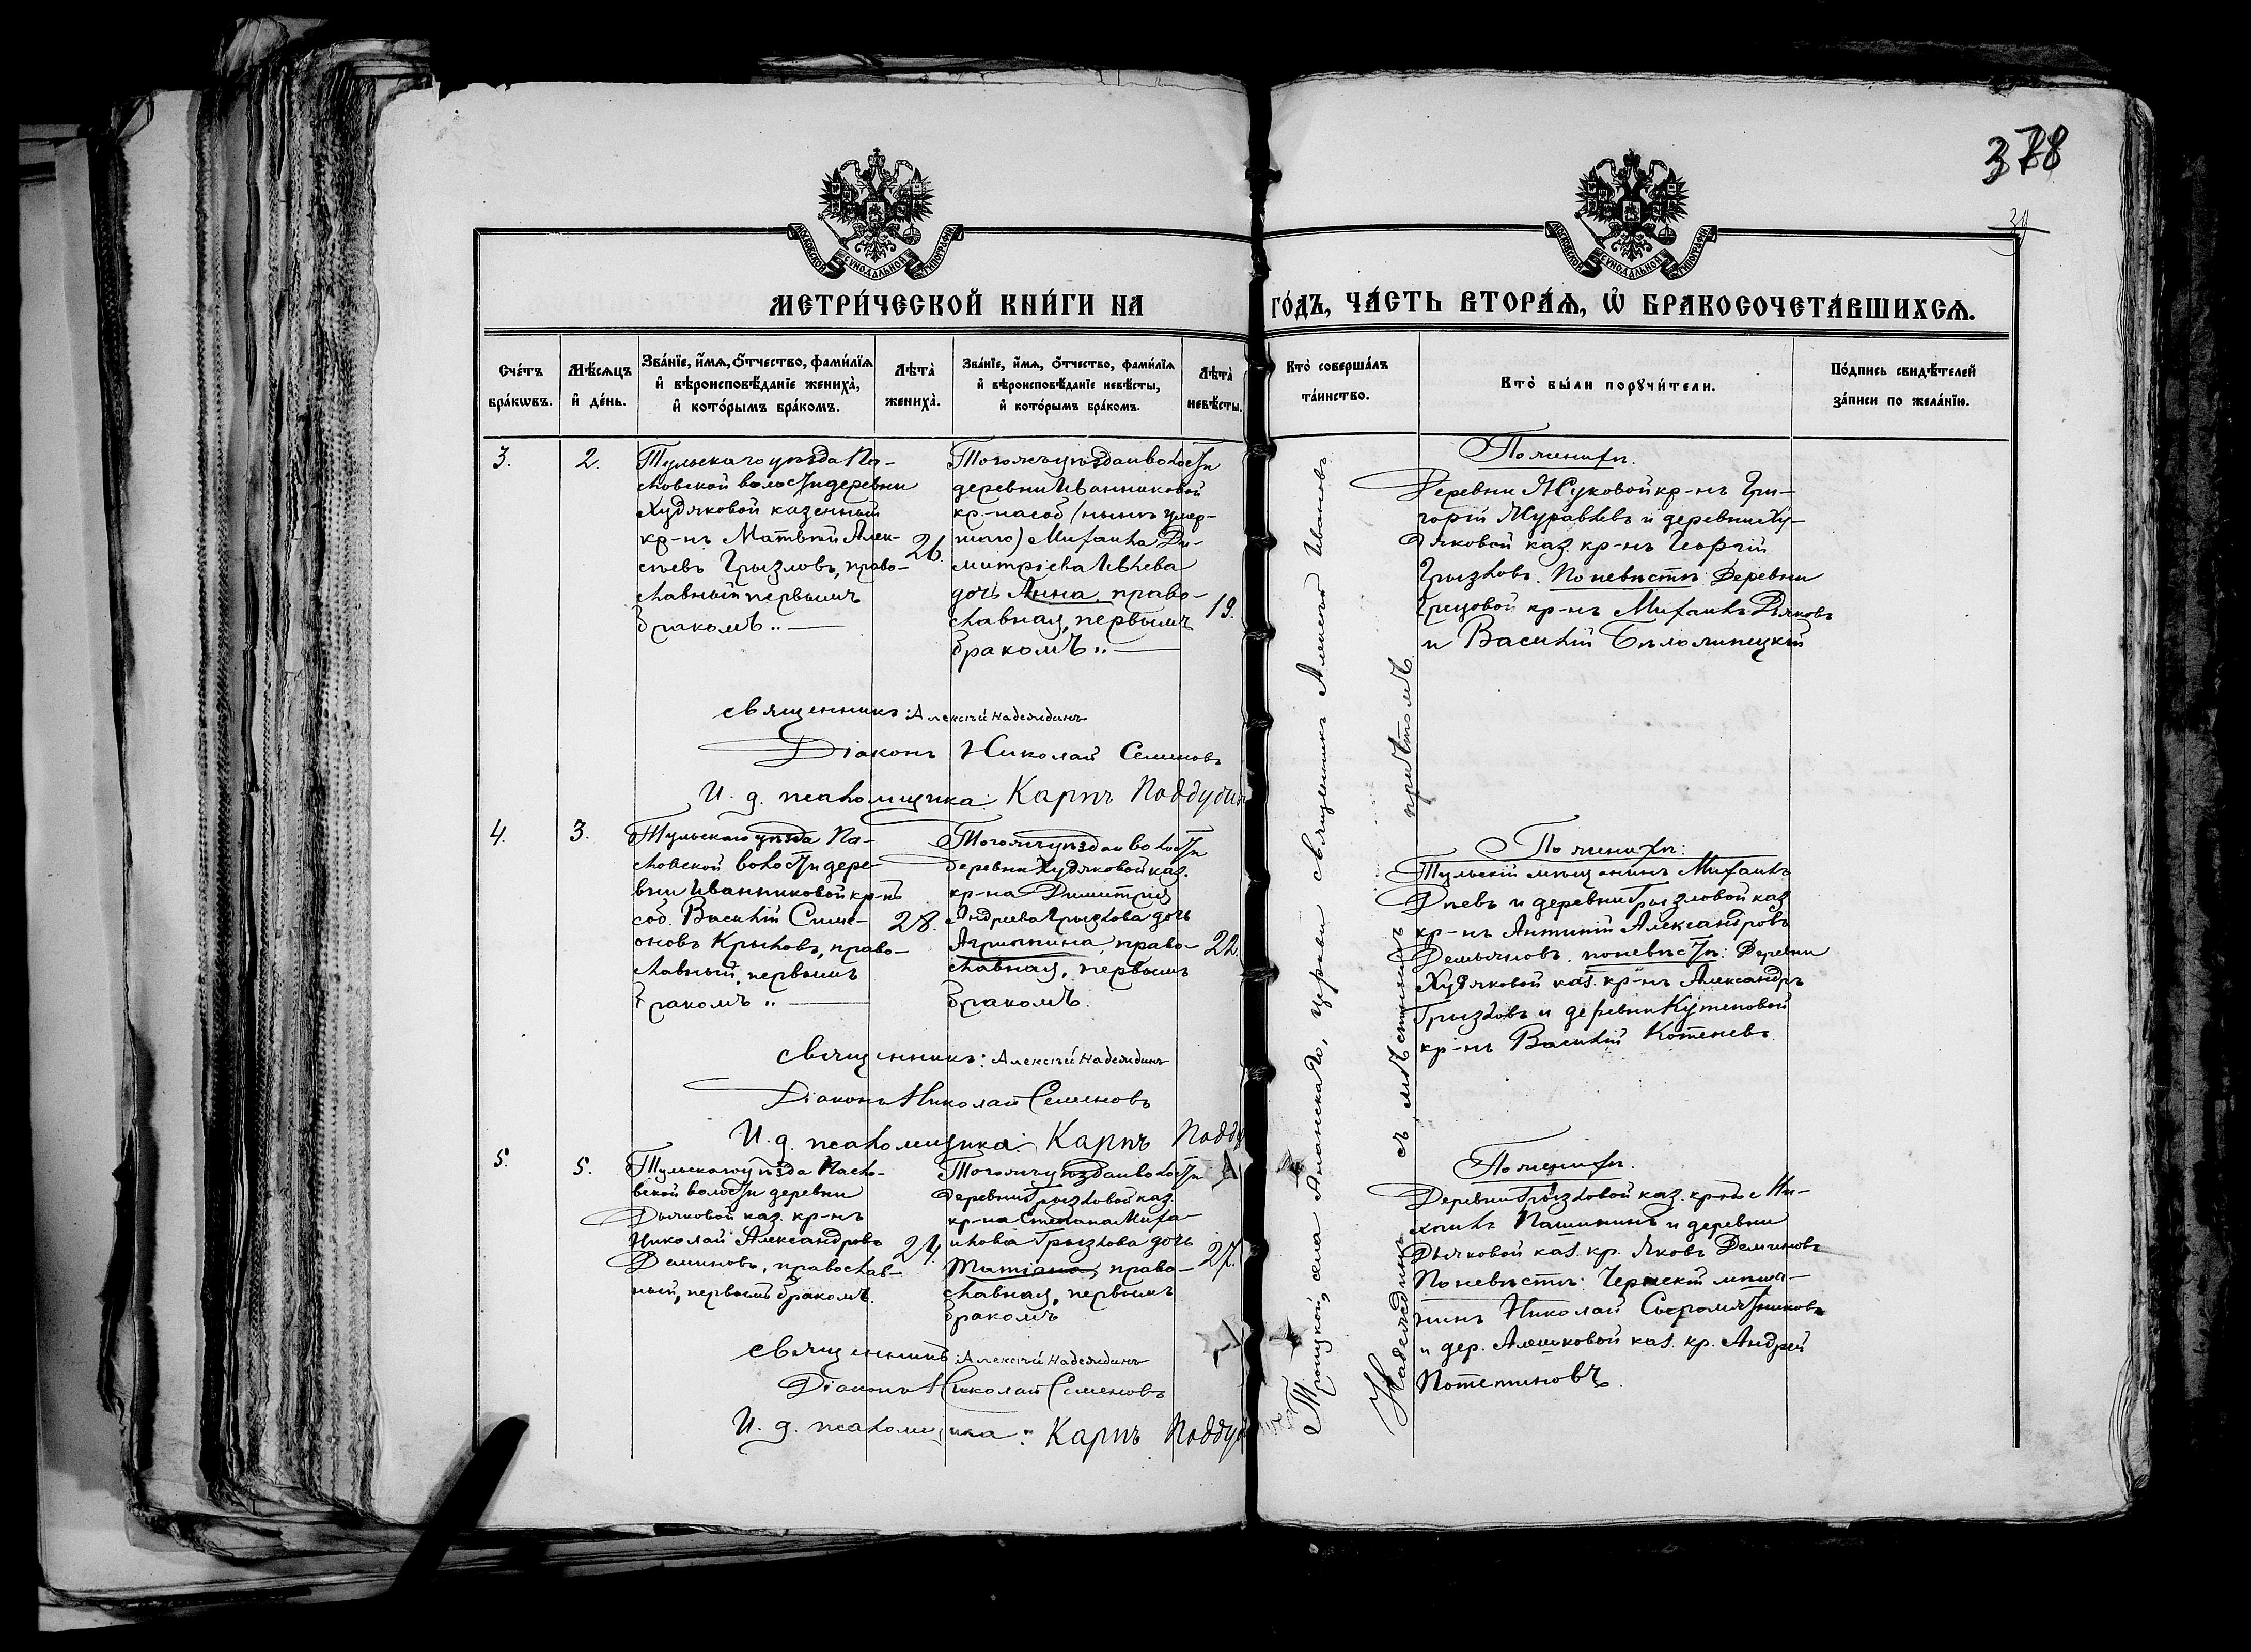 378
МОСКОВСКОЙ СѴНОДАЛЬНОЙ ТИПОГРАФІИ
МОСКОВСКОЙ СѴНОДАЛЬНОЙ ТИПОГРАФІИ
МЕТРИ́ЧЕСКОЙ КНИ́ГИ НА ГО́ДЪ, ЧА́СТЬ ВТОРА́Я, Ѡ БРАКОСОЧЕТА́ВШИХСѦ.
Сче́тъ бра́кѡвъ.
Мѣ́сѧцъ и҆ де́нь.
Зва́нїе, и҆́мѧ, о҆́тчество, фами́лїѧ
и҆ вѣроисповѣ́данїе жениха̀,
и҆ кото́рымъ бра́комъ.
Лѣта̀ жениха̀.
Зва́нїе, и҆́мѧ, о҆́тчество, фами́лїѧ
и҆ вѣроисповѣ́данїе невѣ́сты,
и҆ кото́рымъ бра́комъ.
Лѣта̀ невѣ́сты.
Кто̀ соверша́лъ та́инство.
Кто̀ бы́ли порꙋчи́тели.
По́дпись свидѣ́телей за́писи по жела́нїю.
3.
2.
Тульскаго уѣзда Па-
словской волости деревни
Худяковой казенный
кр-нъ Матвѣй Алек-
сѣевъ Грызловъ, право-
славный первымъ
бракомъ „
26.
Тогоже уѣзда и волости
деревни Иванниковой
кр-на соб (нынѣ умер-
шаго) Михаила Ди-
митріева Ивлева
дочь Анна, право-
славная, первымъ
бракомъ „
19.
По женихѣ.
Деревни Жуковой кр-нъ Гри-
горій Муравлевъ и деревни Ху-
дяковой каз. кр-нъ Георгій
Грызловъ. По невѣстѣ: Деревни
Грецовой кр-нъ Михаилъ Дьяковъ
и Василій Бѣлолипецкій
Священникъ: Алексѣй Надеждинъ
Діаконъ Николай Семеновъ
И. д. псаломщика: Карпъ
4.
3.
Тульскаго уѣзда Па-
словской волости дере-
вни Иванниковой кр-нъ
соб. Василій Симе-
оновъ Крыловъ, право-
славный, первымъ
бракомъ „
28.
Тогоже уѣзда и волости
деревни Худяковой каз.
кр-на Димитрія
Андреева Грызлова дочь
Агриппина, право-
славная, первымъ
бракомъ.
22.
По женихѣ:
Тульскій мѣщанинъ Михаилъ
и деревни Грызловой каз
кр-нъ Антипій Александровъ
Демьяновъ. по невѣстѣ: Деревни
Худяковой каз. кр-нъ Александръ
Грызловъ и деревни Кутеповой
кр-нъ Василій Котеневъ.
Священникъ: Алексѣй Надеждинъ
Діаконъ Николай Семеновъ
И. д. псаломщика: Карпъ
5.
5.
Тульскаго уѣзда Пасло-
вской волости деревни
Дьяковой каз. кр-нъ
Николай Александровъ
Деминовъ, православ-
ный, первымъ бракомъ.
24.
Тогоже уѣзда и волости
деревни Грызловой каз.
кр-на Степана Миха-
илова Грызлова дочь
Татіана, право-
славная, первымъ
бракомъ
27.
По женихѣ.
Деревни Грызловой каз.
Пашининъ и деревни
Дьячковой каз. кр. Яковъ Деминовъ
По невѣстѣ: мѣща-
нинъ Николай Сыромятниковъ
и дер. каз. кр. Андрей
Священникъ: Алексѣй Надеждинъ
Діаконъ Николай Семеновъ
И. д. псаломщика: Карпъ
Троицкой, села Ананскаго, церкви священникъ Алексѣй Ивановъ
Надеждинъ съ мѣстнымъ причтомъ